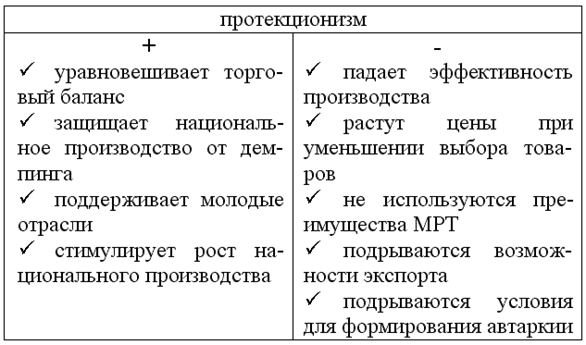 протекционизм
+
✓ уравновешивает торго-
вый баланс
✓ защищает националь-
ное производство от дем-
пинга
✓ поддерживает молодые
отрасли
✓ стимулирует рост на-
ционального производства
-
✓ падает эффективность
производства
✓ растут цены при
уменьшении выбора това-
ров
✓ не используются пре-
имущества МРТ
✓ подрываются возмож-
ности экспорта
✓ подрываются условия
для формирования автаркии